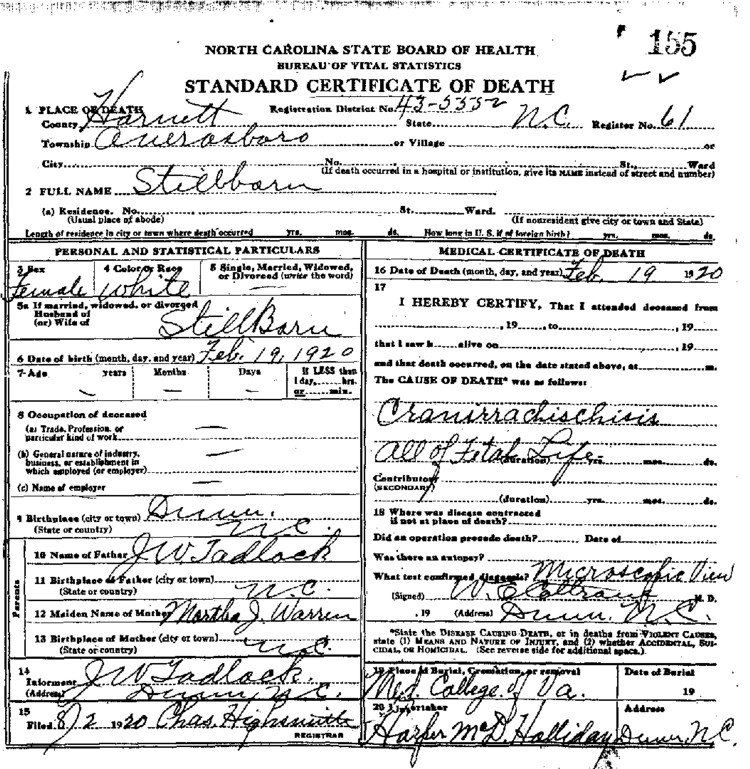 155
NORTH CAROLINA STATE BOARD OF HEALTH
BUREAU OF VITAL STATISTICS
STANDARD CERTIFICATE OF DEATH
1 PLACE OF DEATH Registration District No. 43-5352
County Harnett State N.C. Register No. 61
Township Averasboro or Village or
City No. St., Ward
(If death occurred in a hospital or institution, give its NAME instead of street and number)
2 FULL NAME Stillborn
(a) Residence. No. St. Ward.
(Usual place of abode) (If nonresident give city or town and State)
Length of residence in city or town where death occurred yrs. mos. ds. How long in U. S. if of foreign birth? yrs. mos. ds.
PERSONAL AND STATISTICAL PARTICULARS
3 Sex 4 Color or Race 5 Single, Married, Widowed,
or Divorced (write the word)
Female White
5a If married, widowed, or divorced
Husband of
(or) Wife of StillBorn
6 Date of birth (month, day, and year) Feb. 19, 1920
7 Age years Months Days If LESS than
1 day, hrs.
or min.
8 Occupation of deceased
(a) Trade, Profession, or
particular kind of work
(b) General nature of industry,
business, or establishment in
which employed (or employer)
(c) Name of employer
9 Birthplace (city or town) Dunn.
(State or country) N.C.
Parents
10 Name of Father J W Tadlock
11 Birthplace of Father (city or town)
(State or country) N.C.
12 Maiden Name of Mother Martha J. Warren
13 Birthplace of Mother (city or town)
(State or country) N.C.
14
Informant J W Tadlock.
(Address) Dunn, N.C.
15
Filed 8/2 1920 Chas. Highsmith
REGISTRAR
MEDICAL CERTIFICATE OF DEATH
16 Date of Death (month, day, and year) Feb. 19 1920
17
I HEREBY CERTIFY, That I attended deceased from
, 19 , to , 19
that I saw h alive on , 19
and that death occurred, on the date stated above, at m.
The CAUSE OF DEATH* was as follows:
Cranirrachischisis
All of Fetal Life
(duration) yrs. mos. ds.
Contributory
(SECONDARY)
(duration) yrs. mos. ds.
18 Where was disease contracted
if not at place of death?
Did an operation precede death? Date of
Was there an autopsy?
What test confirmed diagnosis? Microscopic View
(Signed) W. E. Coltrane M. D.
, 19 (Address) Dunn, N.C.
*State the DISEASE CAUSING DEATH, or in deaths from VIOLENT CAUSES,
state (1) MEANS AND NATURE OF INJURY, and (2) whether ACCIDENTAL, SUI-
CIDAL, OR HOMICIDAL. (See reverse side for additional space.)
19 Place of Burial, Cremation, or removal Date of Burial
Med. College of Va. 19
20 Undertaker Address
Harper McD. Halliday Dunn N.C.